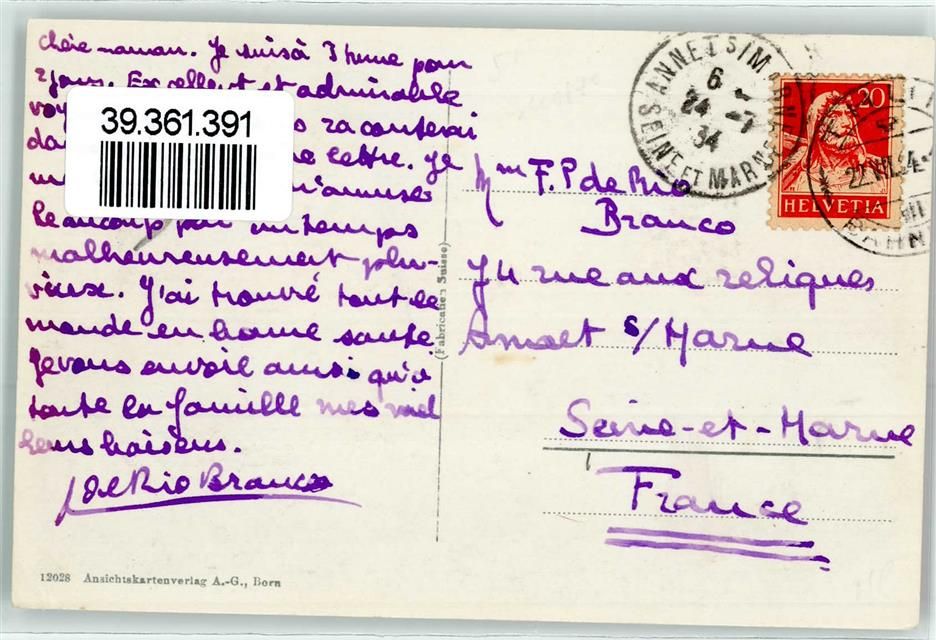 Chère maman. Je suis à Thune pour
2 jours. Excellent et admirable
voy
39.361.391
da s raconterai
ne lettre. Je
m'amuse
beaucoup par un temps
malheureusement plu-
vieux. J'ai trouvé tout le
monde en bonne santé.
Je vous envoie ainsi qu'à
toute la famille mes meil
leurs baisers.
J de Rio Branco
12028 Ansichtskartenverlag A.-G., Bern
(Fabrication Suisse)
ANNET S/MARNE
6
24 -7
34
SEINE ET MARNE
20
HELVETIA
Mme F. P de Rio
Branco
74 rue aux reliques
Annet s/Marne
Seine-et-Marne
France